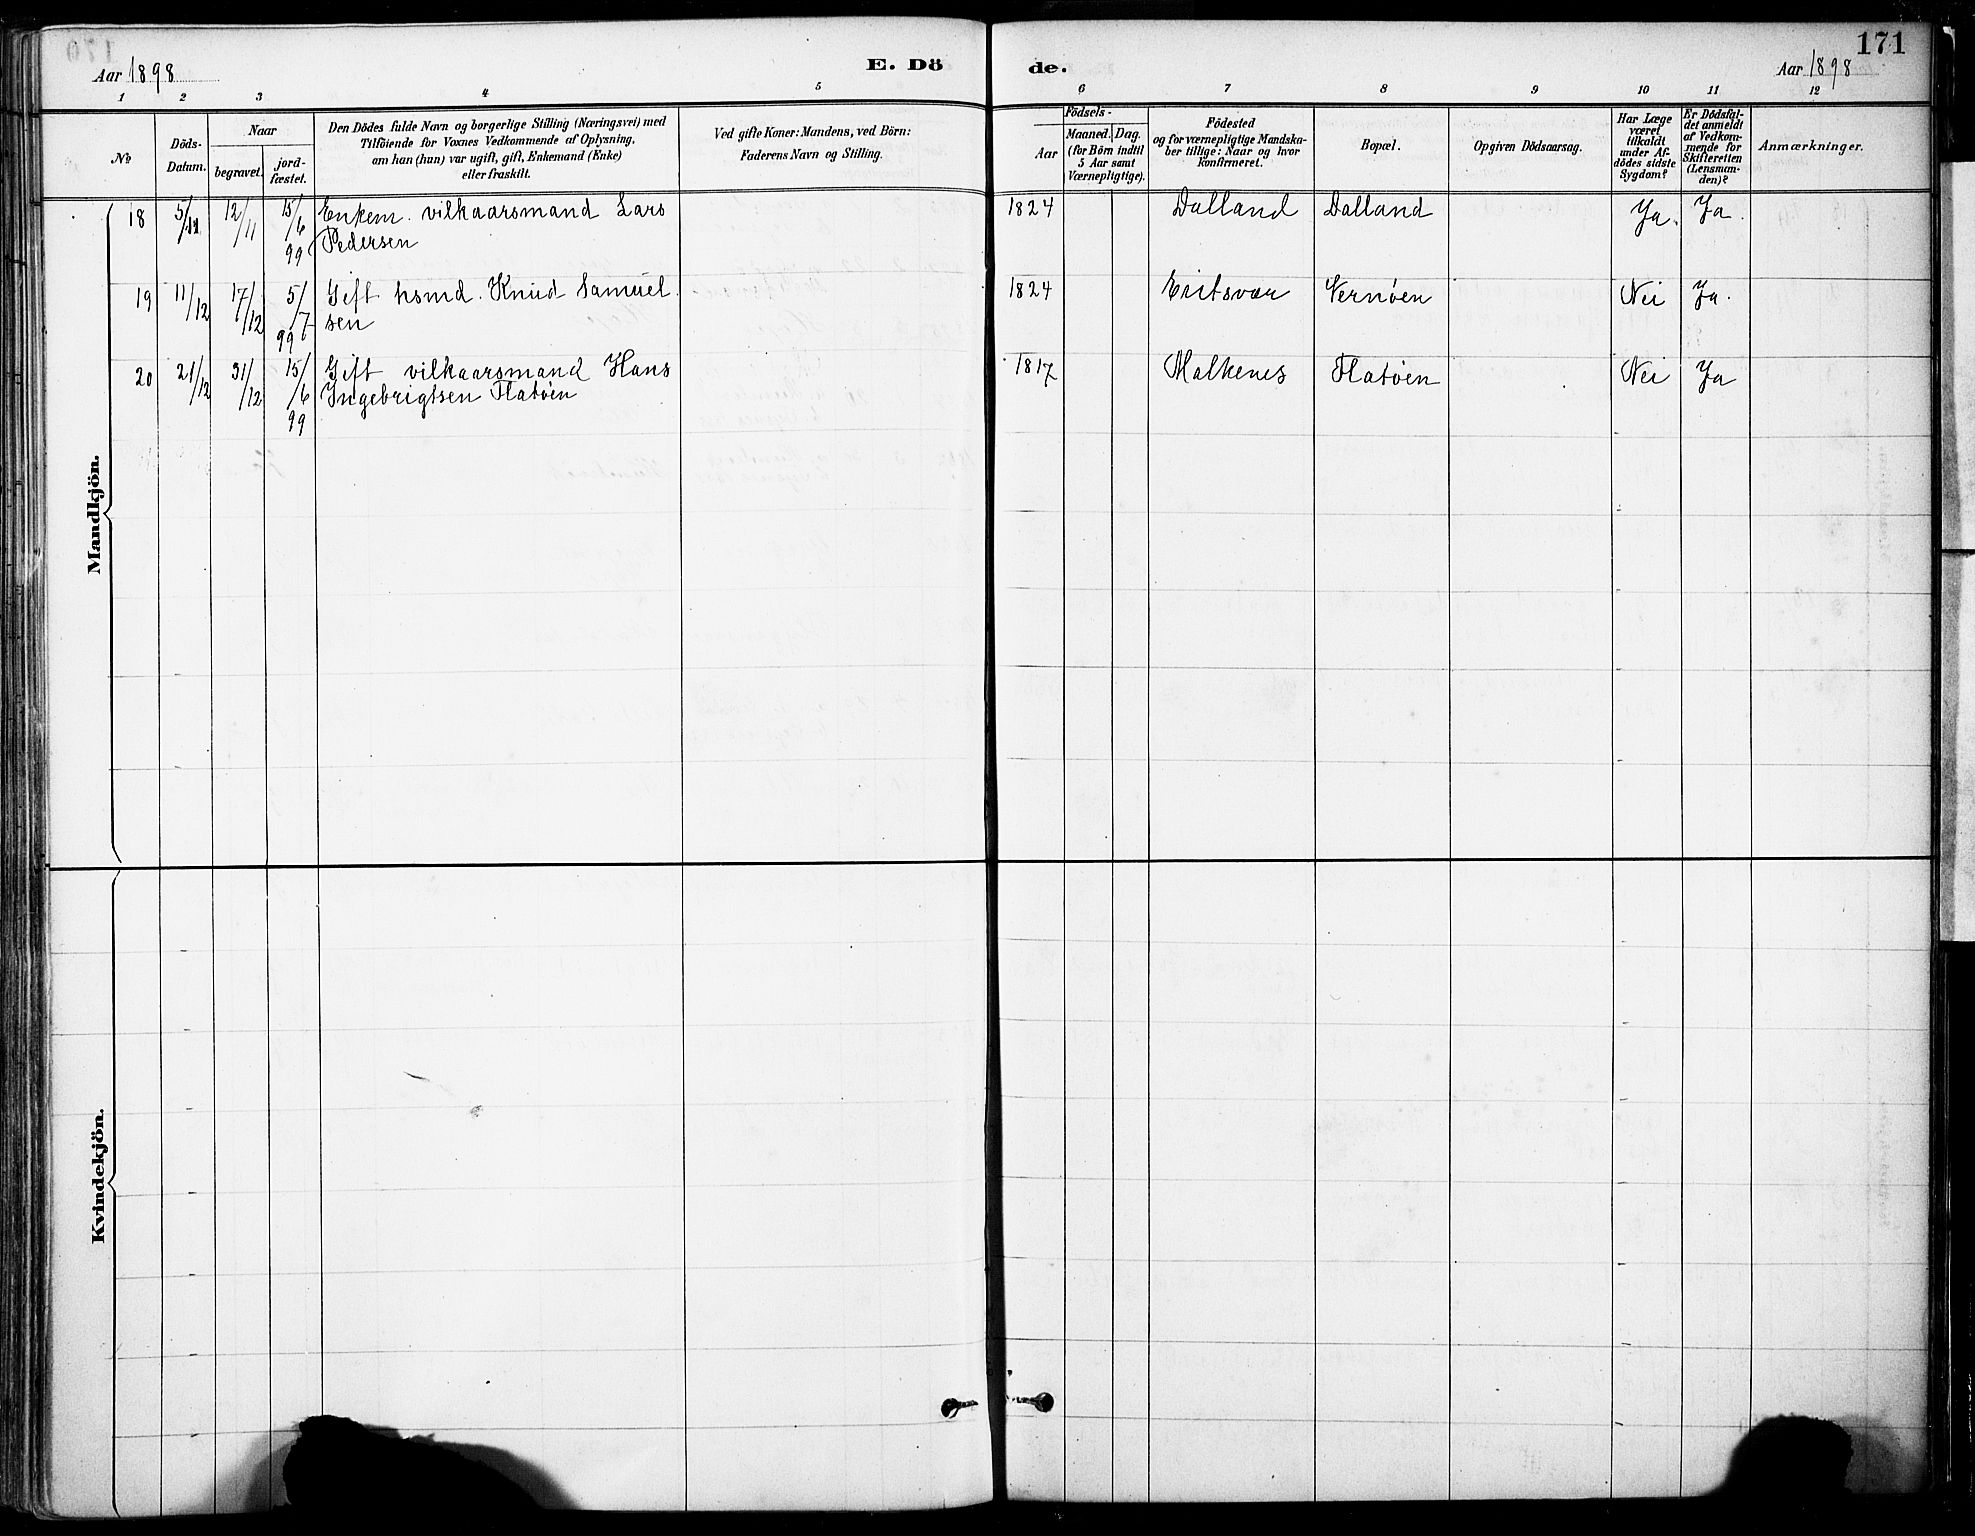 171
Aar 1898
E. Dö
de.
Aar 1898
1 2 3 4 5 6 7 8 9 10 11 12
№
Döds-
Datum.
Naar
begravet.
jord-
fæstet.
Den Dödes fulde Navn og borgerlige Stilling (Næringsvei) med
Tilföiende for Voxnes Vedkommende af Oplysning,
om han (hun) var ugift, gift, Enkemand (Enke)
eller fraskilt.
Ved gifte Koner: Mandens, ved Börn:
Faderens Navn og Stilling.
Födsels-
Aar
Maaned.
Dag.
(for Börn indtil
5 Aar samt
Værnepligtige).
Födested
og for værnepligtige Mandska-
ber tillige: Naar og hvor
konfirmeret.
Bopæl.
Opgiven Dödsaarsag.
Har Læge
været
tilkaldt
under Af-
dödes sidste
Sygdom?
Er Dödsfal-
det anmeldt
af Vedkom-
mende for
Skifteretten
(Lensman-
den)?
Anmærkninger.
Mandkjön.
18 5/11 12/11 15/6 99 Enkem. vilkaarsmand Lars
Pedersen
1824 Dalland Dalland Ja. Ja.
19 11/12 17/12 5/7 99 Gift hsmd. Knud Samuel
sen
1824 Eritsvær Vernøen Nei Ja.
20 21/12 31/12 15/6 99 Gift vilkaarsmand Hans
Ingebrigtsen Flatøen
1817 Malkenes Flatøen Nei Ja
Kvindekjön.